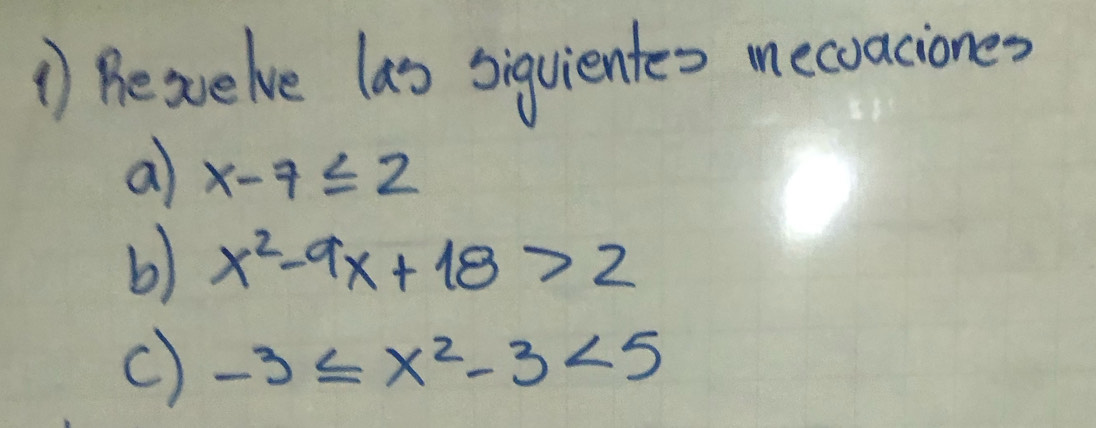 1) Resuelve las siguientes inecuaciones
a) x-7 ≤ 2
b) x²-9x + 18 > 2
c) -3 ≤ x²-3 < 5